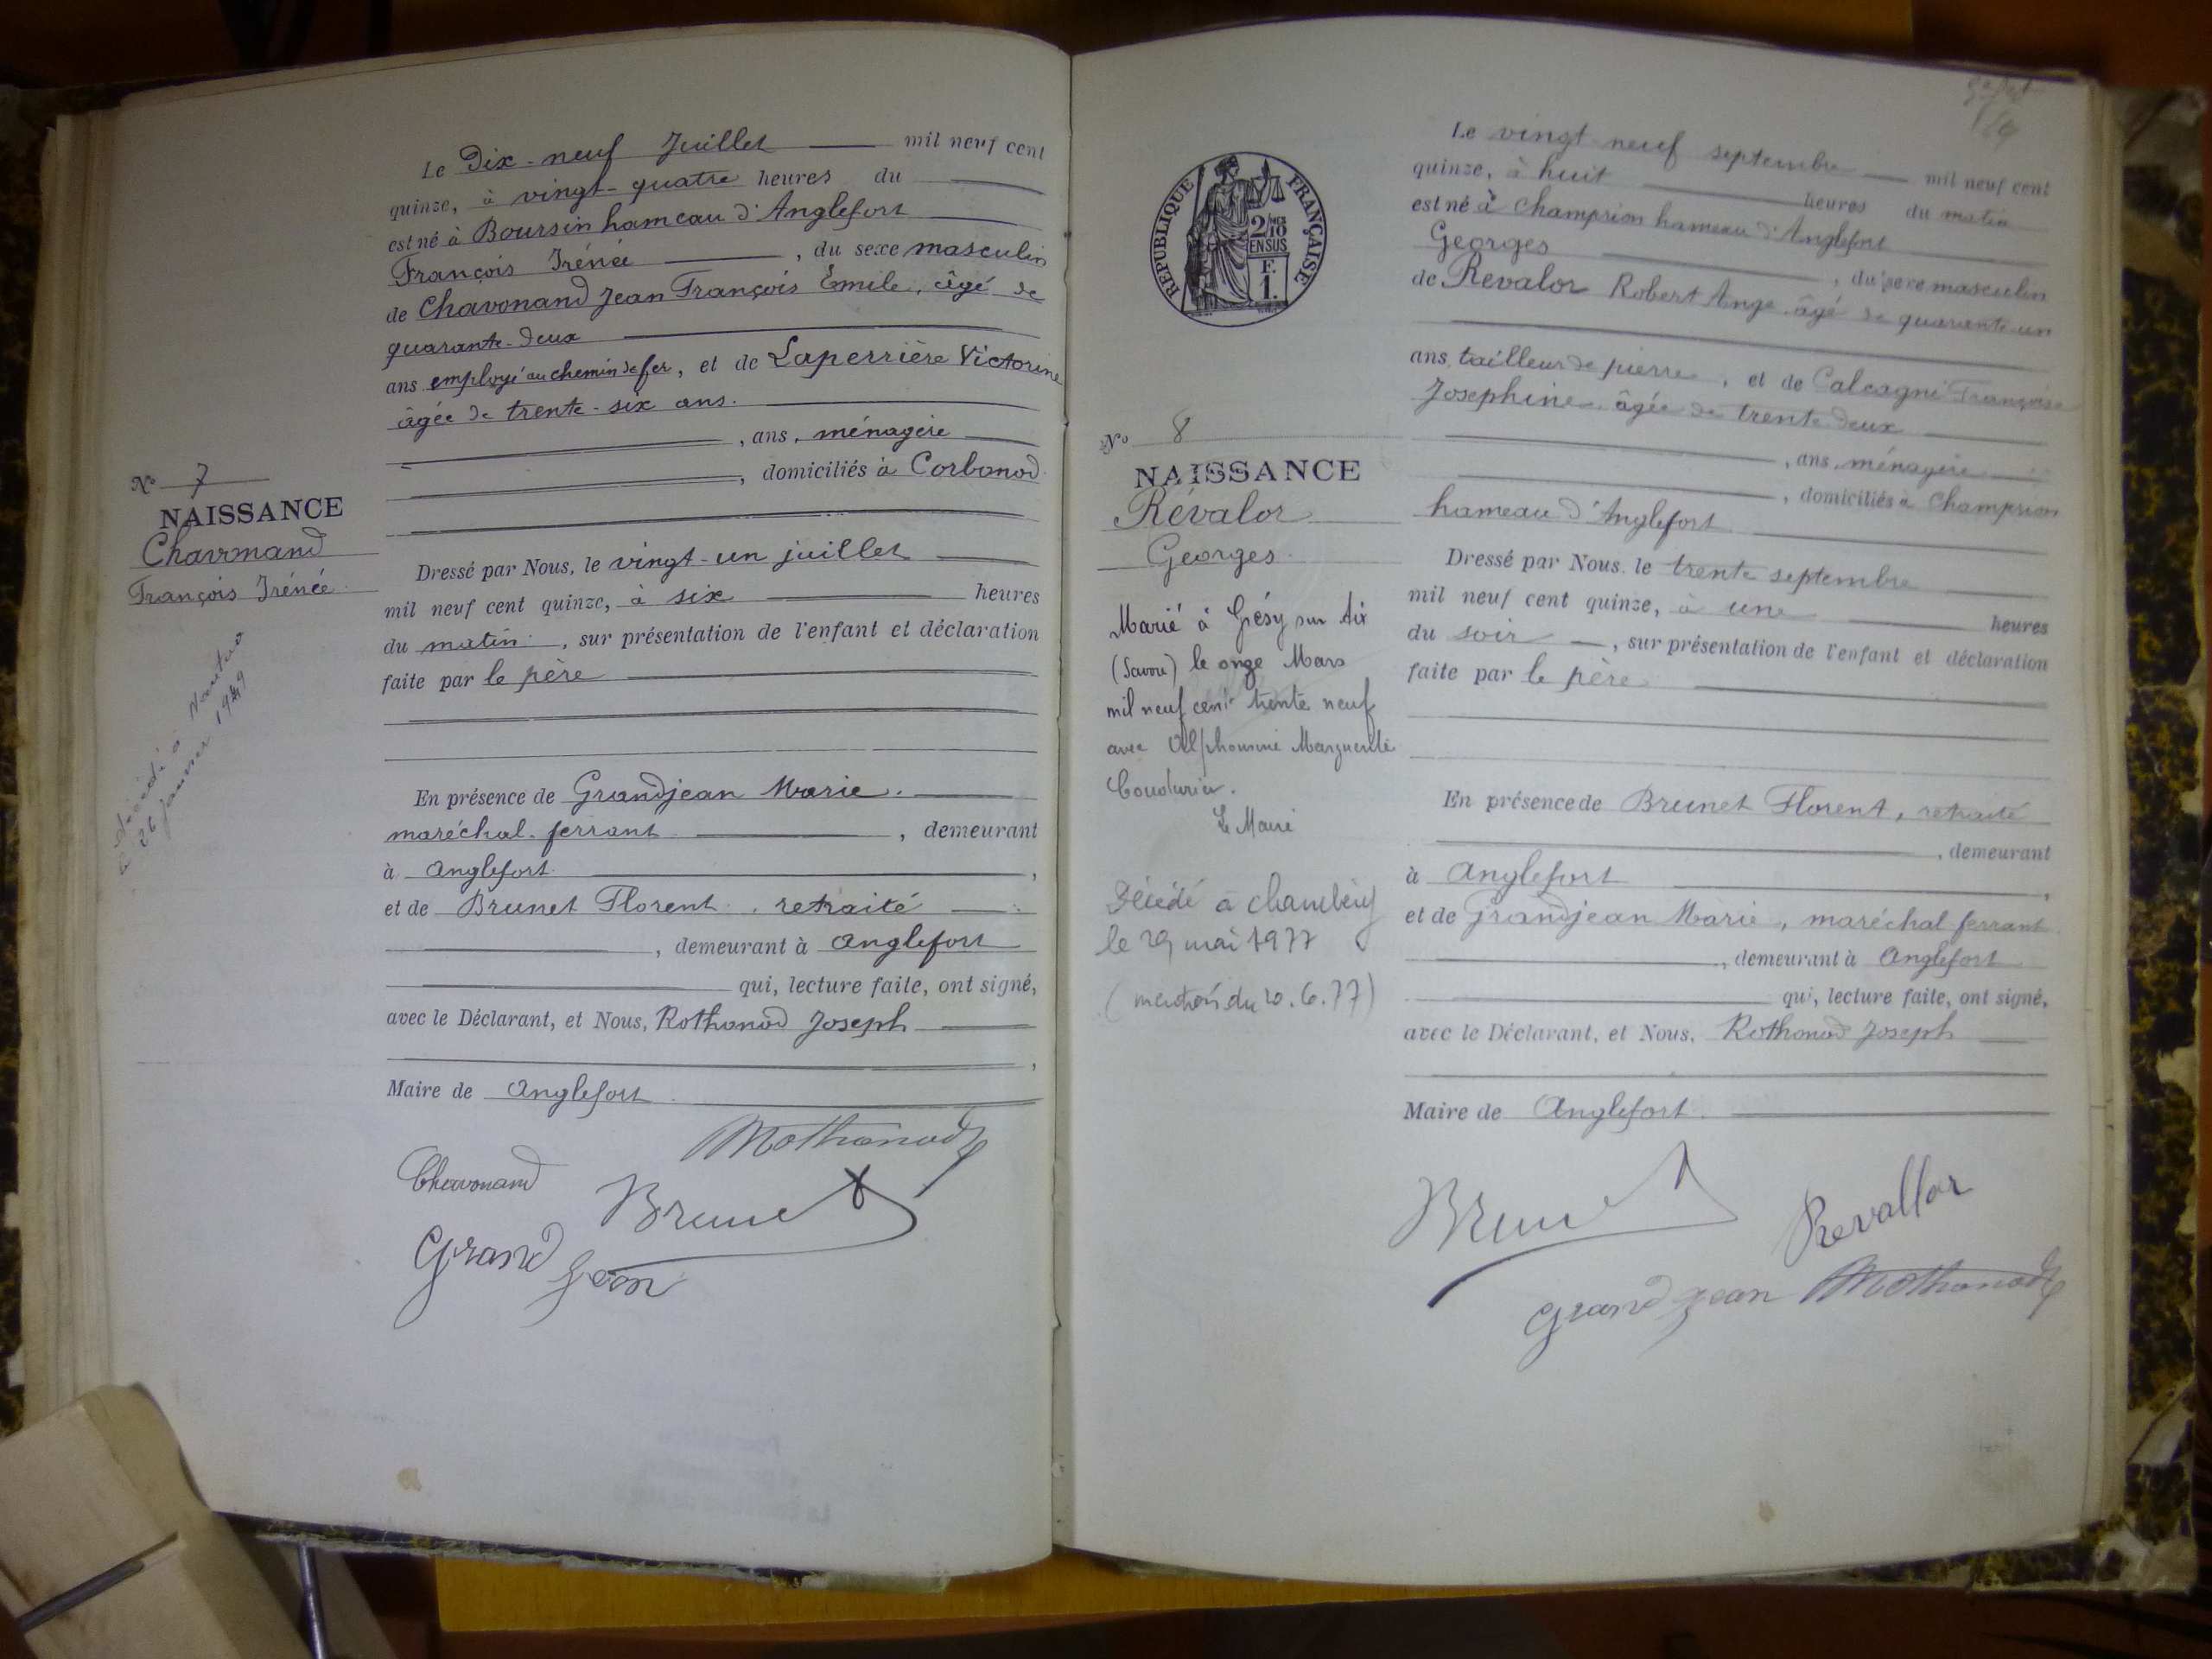 Le Dix-neuf Juillet mil neuf cent
quinze, à vingt-quatre heures du
est né à Boursin hameau d'Anglefort
François Irénée, du sexe masculin
de Chavonand Jean François Emile, âgé de
quarante-deux
ans employé au chemin de fer, et de Laperrière Victorine
âgée de trente-six ans.
, ans, ménagère
, domiciliés à Corbonod
No 7
NAISSANCE
Chavonand
François Irénée
décédé à Nantua
26 janvier 1949
Dressé par Nous, le vingt-un juillet
mil neuf cent quinze, à six heures
du matin, sur présentation de l'enfant et déclaration
faite par le père
En présence de Grandjean Marie.
maréchal-ferrant, demeurant
à Anglefort,
et de Brunet Florent, retraité
, demeurant à Anglefort
qui, lecture faite, ont signé,
avec le Déclarant, et Nous, Rothonod Joseph
,
Maire de Anglefort
Rothonod
Chavonand
Brunet
Grand Jean
REPUBLIQUE FRANÇAISE
2/10
EN SUS
F.
1.
No 8
NAISSANCE
Révalor
Georges
Marié à Grésy sur Aix
(Savoie) le onze Mars
mil neuf cent trente neuf
avec Alphonsine Marguerite
Couturier.
Le Maire
Décédé à Chambéry
le 29 mai 1977
(mention du 20.6.77)
Le vingt-neuf septembre mil neuf cent
quinze, à huit heures du matin
est né à Champrion hameau d'Anglefort
Georges, du sexe masculin
de Revalor Robert Ange âgé de quarante-un
ans, tailleur de pierre, et de Calcagni Françoise
Josephine, âgée de trente-deux
, ans, ménagère
, domiciliés à Champrion
hameau d'Anglefort
Dressé par Nous, le trente septembre
mil neuf cent quinze, à une heures
du soir, sur présentation de l'enfant et déclaration
faite par le père
En présence de Brunet Florent, retraité
, demeurant
à Anglefort,
et de Grandjean Marie, maréchal ferrant
, demeurant à Anglefort
qui, lecture faite, ont signé,
avec le Déclarant, et Nous, Rothonod Joseph
Maire de Anglefort.
Brunet
Revallor
Grand Jean Rothonod